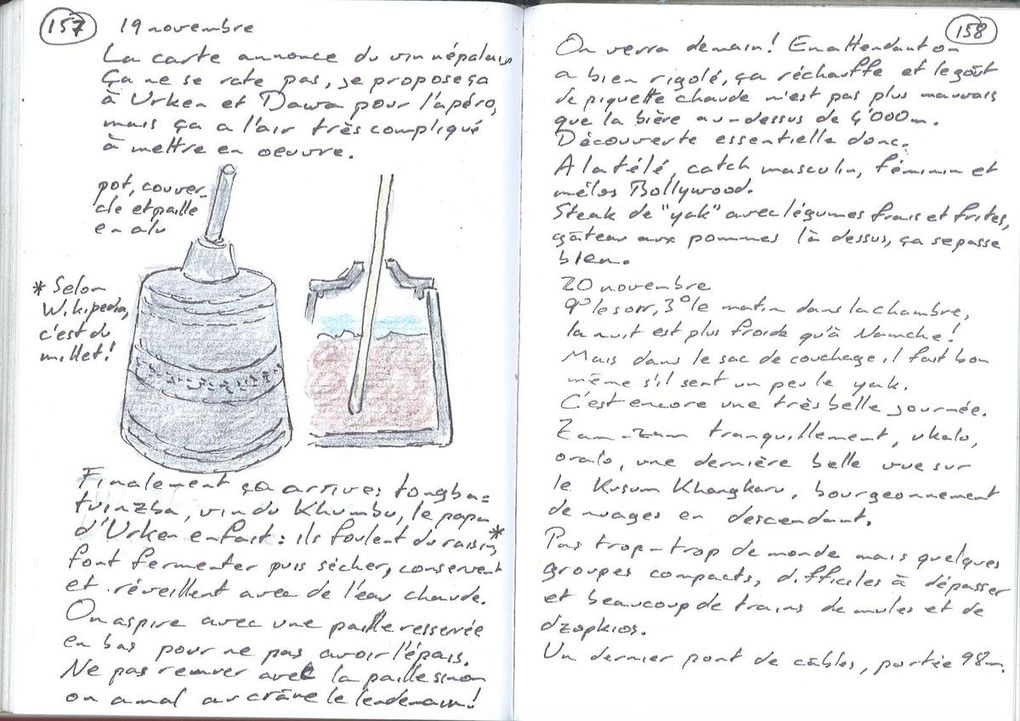 157
19 novembre
La carte annonce du vin népalais,
Ça ne se rate pas, je propose ça
à Urken et Dawa pour l'apéro,
mais ça a l'air très compliqué
à mettre en oeuvre.
pot, couver-
cle et paille
en alu
* Selon
Wikipedia,
c'est du
millet!
Finalement ça arrive: tongba =
tvinzba, vin du Khumbu, le
d'Urken en fait: ils foulent du raisin,*
font fermenter puis sécher, conservent
et réveillent avec de l'eau chaude.
On aspire avec une paille resserrée
en bas pour ne pas avoir l'épais.
Ne pas remuer avec la paille sinon
on a mal au crâne le lendemain!
158
On verra demain! En attendant on
a bien rigolé, ça réchauffe et le goût
de piquette chaude n'est pas plus mauvais
que la bière au-dessus de 4'000m.
Découverte essentielle donc.
A la télé, catch masculin, féminin et
mélos Bollywood.
Steak de "yak" avec légumes frais et frites,
gâteau aux pommes là dessus, ça se passe
bien.
20 novembre
9° le soir, 3° le matin dans la chambre,
la nuit est plus froide qu'à Namche!
Mais dans le sac de couchage il fait bon
même s'il sent un peu le yak.
C'est encore une très belle journée.
Zam-Zam tranquillement, ukalo,
oralo, une dernière belle vue sur
le Kusum Khangkaru, bourgeonnement
de nuages en descendant.
Pas trop-trop de monde mais quelques
groupes compacts, difficiles à dépasser
et beaucoup de trains de mules et de
dzopkios.
Un dernier pont de câbles, portée 98m.